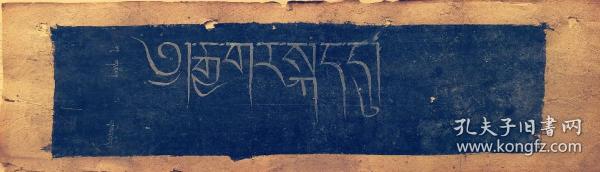 ༄༅།རྒྱ་གར་སྐད་དུ།
孔夫子旧書网
www.kongfz.com